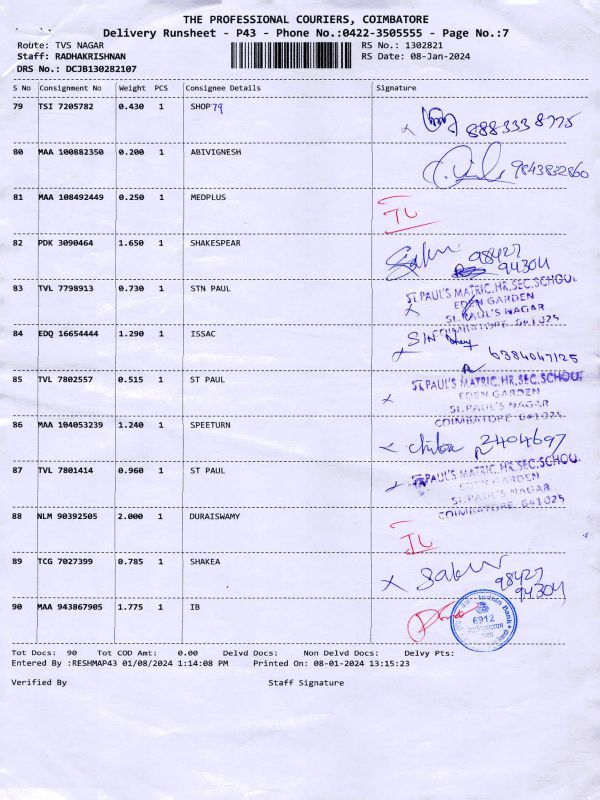 THE PROFESSIONAL COURIERS, COIMBATORE
Delivery Runsheet - P43 - Phone No.:0422-3505555 - Page No.:7
Route: TVS NAGAR RS No.: 1302821
Staff: RADHAKRISHNAN RS Date: 08-Jan-2024
DRS No.: DCJB130282107
S No Consignment No Weight PCS Consignee Details Signature
79 TSI 7205782 0.430 1 SHOP 79
8883338775
80 MAA 100882350 0.200 1 ABIVIGNESH
9843832860
81 MAA 108492449 0.250 1 MEDPLUS
82 PDK 3090464 1.650 1 SHAKESPEAR
98427
94304
83 TVL 7798913 0.730 1 STN PAUL
ST.PAUL'S MATRIC.HR.SEC.SCHOOL
EDEN GARDEN
ST.PAUL'S NAGAR
COIMBATORE-641025
84 EDQ 16654444 1.290 1 ISSAC
6384047125
85 TVL 7802557 0.515 1 ST PAUL
ST.PAUL'S MATRIC.HR.SEC.SCHOOL
EDEN GARDEN
ST.PAUL'S NAGAR
COIMBATORE-641025
86 MAA 104053239 1.240 1 SPEETURN
2404697
87 TVL 7801414 0.960 1 ST PAUL
ST.PAUL'S MATRIC.HR.SEC.SCHOOL
EDEN GARDEN
ST.PAUL'S NAGAR
COIMBATORE-641025
88 NLM 90392505 2.000 1 DURAISWAMY
89 TCG 7027399 0.785 1 SHAKEA
98427
94304
90 MAA 943867905 1.775 1 IB
Indian Bank
6912
Tot Docs: 90 Tot COD Amt: 0.00 Delvd Docs: Non Delvd Docs: Delvy Pts:
Entered By :RESHMAP43 01/08/2024 1:14:08 PM Printed On: 08-01-2024 13:15:23
Verified By Staff Signature